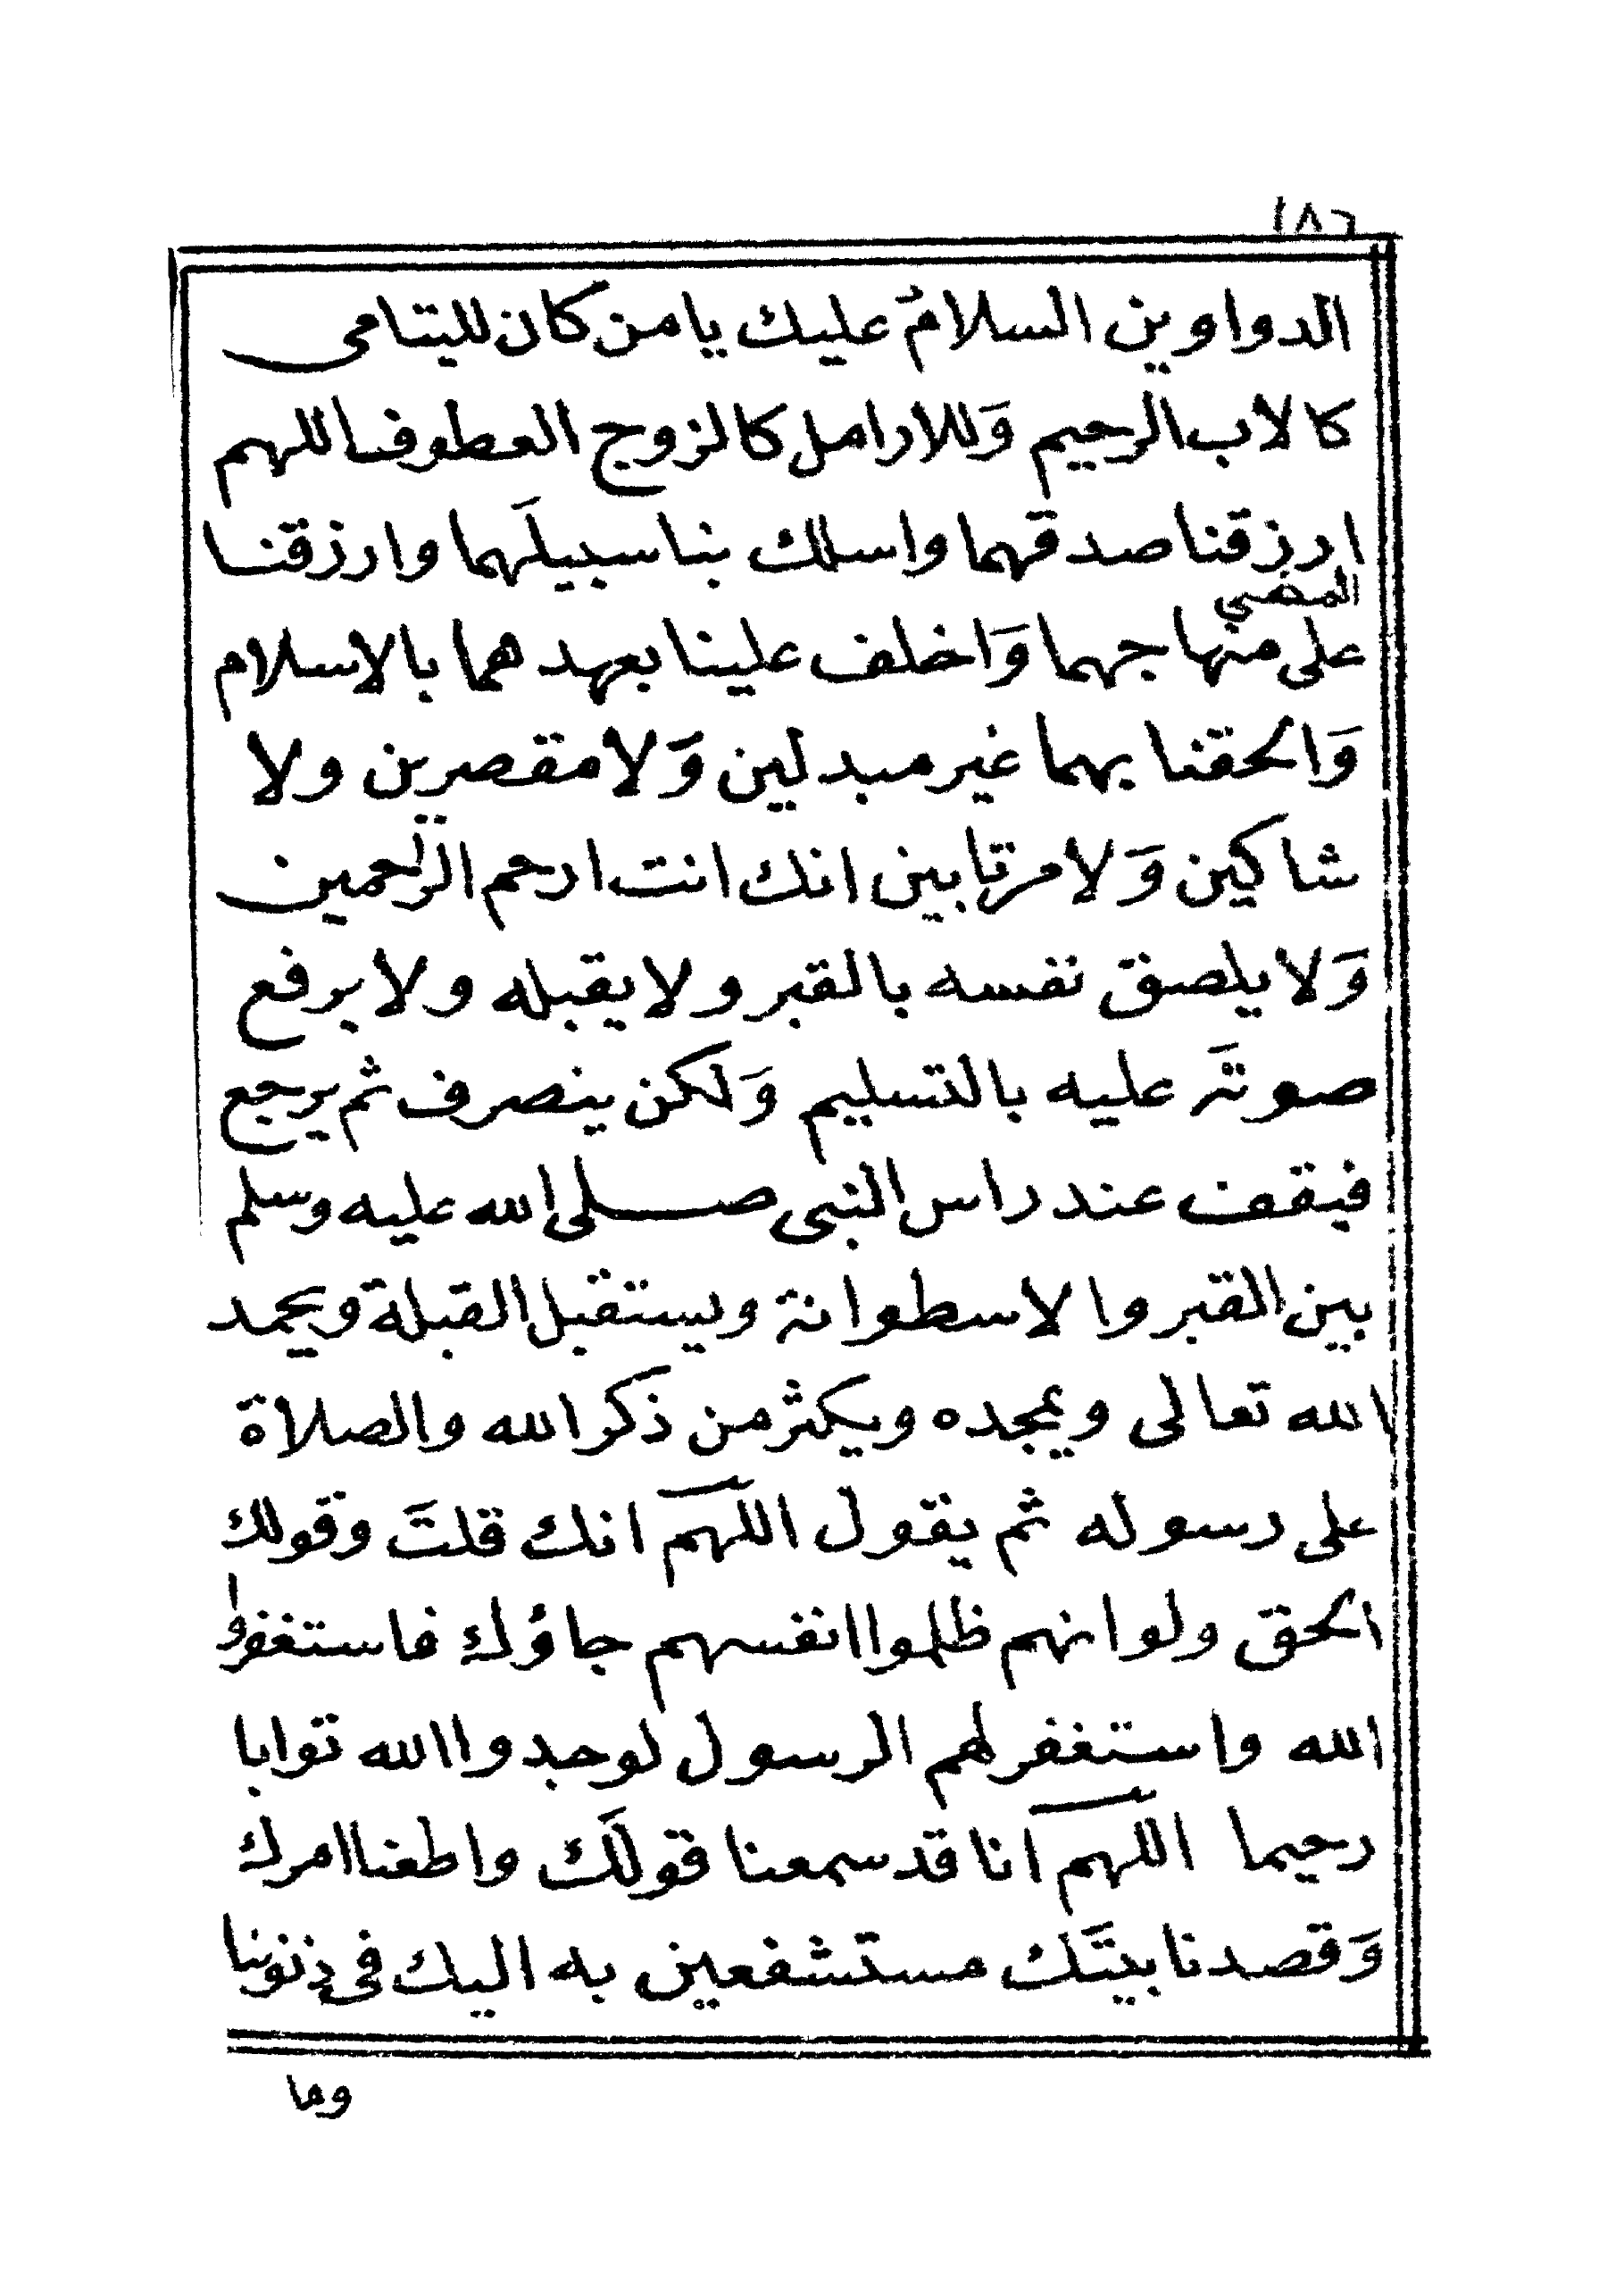 ١٨٦
الدواوين السلامُ عليك يا من كان لليتامى
كالاب الرحيم وَللارامل كالزوج العطوف اللهم
ارزقنا صدقهما واسلك بنا سبيلَهما وارزقنا
المضي
على منهاجهما وَاخلف علينا بعهدهما بالاسلام
وَالحقنا بهما غير مبدلين وَلا مقصرين ولا
شاكين وَلا مرتابين انك انت ارحم الراحمين
وَلا يلصق نفسه بالقبر ولا يقبله ولا يرفع
صوتَه عليه بالتسليم وَلكن ينصرف ثم يرجع
فيقف عند راس النبى صلى الله عليه وسلم
بين القبر والاسطوانة ويستقبل القبلة ويحمد
الله تعالى ويمجده ويكثر من ذكر الله والصلاة
على رسوله ثم يقول اللهم انك قلتَ وقولك
الحق ولو انهم ظلموا انفسهم جاؤك فاستغفروا
الله واستغفر لهم الرسول لوجدوا الله توابا
رحيما اللهم انا قد سمعنا قولَك واطعنا امرك
وَقصدنا بيتَك مستشفعين به اليك فى ذنوبنا
وما